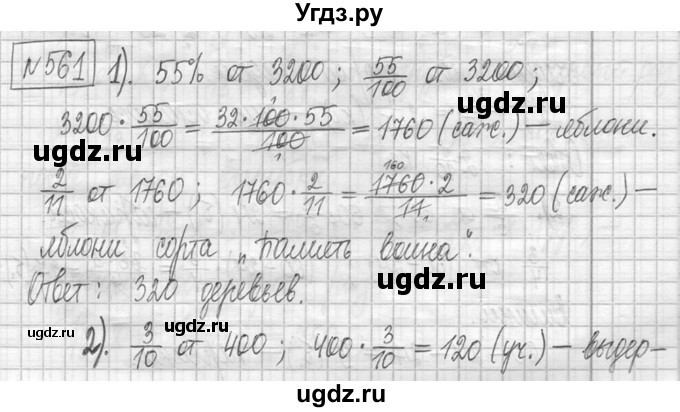 Угдз.ру
№561 1). 55% от 3200; 55/100 от 3200;
3200 · 55/100 = 32 · 100 · 55/100 = 1760 (саж.) – яблони.
2/11 от 1760; 1760 · 2/11 = 1760 · 2/11 = 320 (саж.) –
яблони сорта „Память воина“.
Ответ: 320 деревьев.
2). 3/10 от 400; 400 · 3/10 = 120 (уч.) – выдер–
ugdz.ru
ugdz.ru
ugdz.ru
ugdz.ru
ugdz.ru
ugdz.ru
ugdz.ru
ugdz.ru
ugdz.ru
ugdz.ru